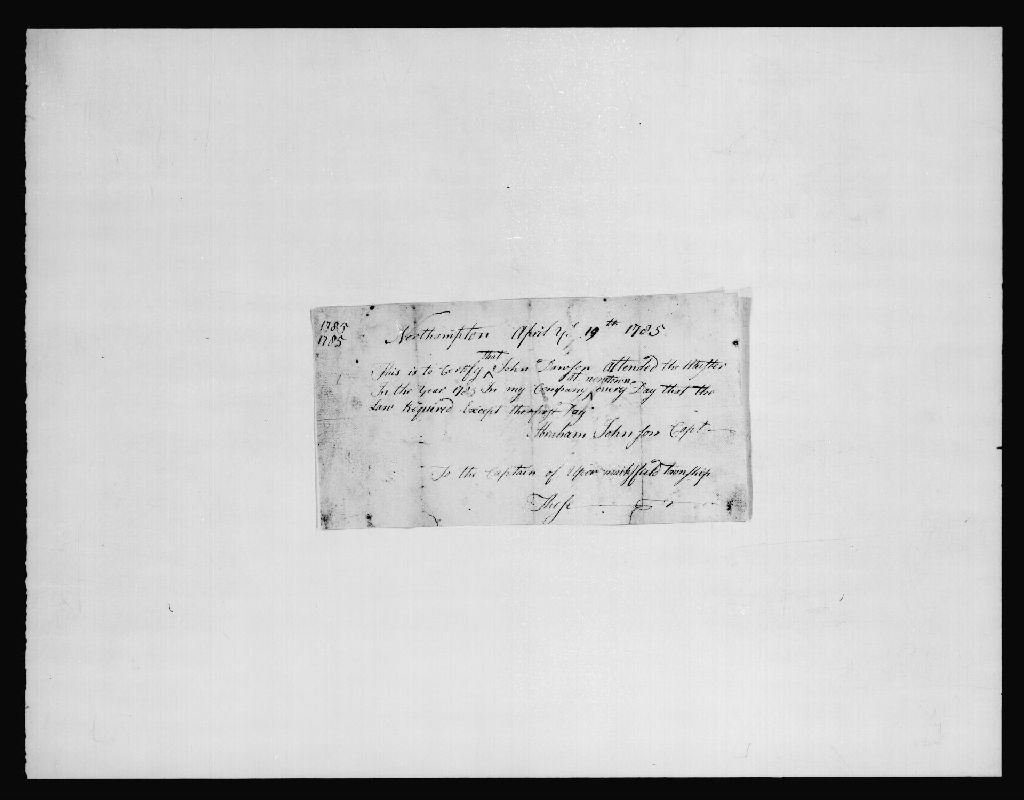 1785
1785
Northampton April ye 19th 1785
This is to Certify that John Dawson attended the Muster
In the Year 178 In my Company at newtown every Day that the
Law Required Except the first Day
Abraham Johnson Capt
To the Captain of Uper township
These